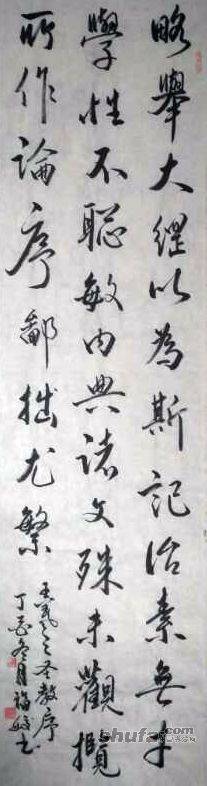 略舉大綱以為斯記治素無才
學性不聰敏内典諸文殊未觀攬
所作論序鄙拙尤繁
王羲之聖教序
丁酉冬月福書
shufa.com